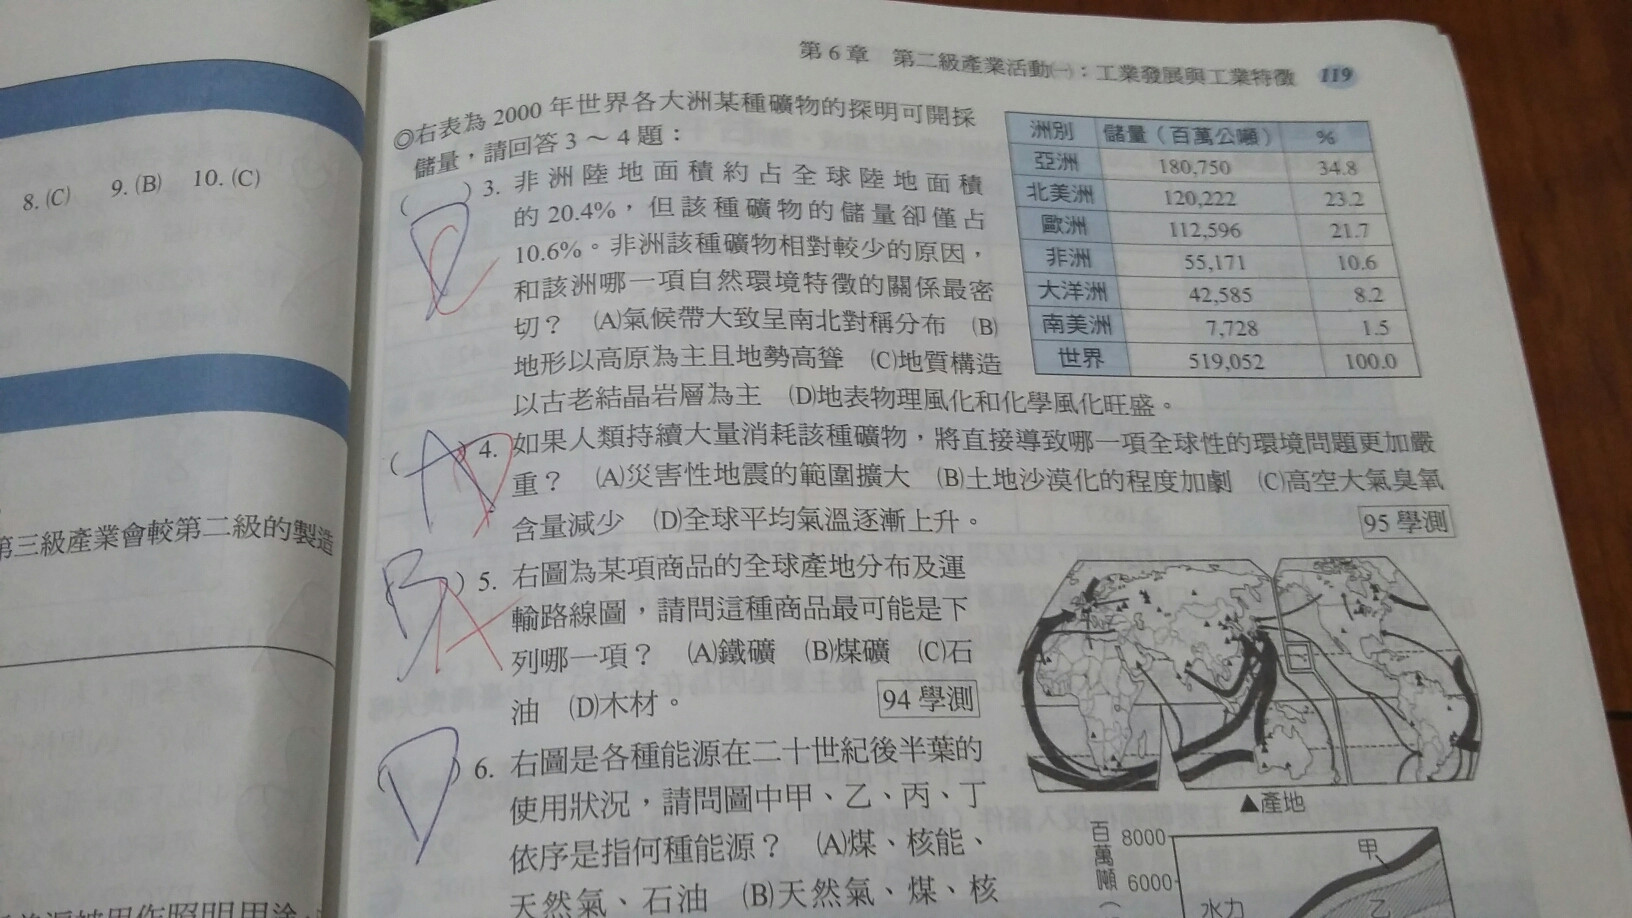 8.(C)　9.(B)　10.(C)
第三級產業會較第二級的製造
第6章　第二級產業活動㈠：工業發展與工業特徵　119
◎右表為2000年世界各大洲某種礦物的探明可開採
儲量，請回答3～4題：
(　)3. 非洲陸地面積約占全球陸地面積
的20.4%，但該種礦物的儲量卻僅占
10.6%。非洲該種礦物相對較少的原因，
和該洲哪一項自然環境特徵的關係最密
切？　(A)氣候帶大致呈南北對稱分布　(B)
地形以高原為主且地勢高聳　(C)地質構造
以古老結晶岩層為主　(D)地表物理風化和化學風化旺盛。
D
C
洲別　儲量（百萬公噸）　%
亞洲　180,750　34.8
北美洲　120,222　23.2
歐洲　112,596　21.7
非洲　55,171　10.6
大洋洲　42,585　8.2
南美洲　7,728　1.5
世界　519,052　100.0
(A)4. 如果人類持續大量消耗該種礦物，將直接導致哪一項全球性的環境問題更加嚴
D
重？　(A)災害性地震的範圍擴大　(B)土地沙漠化的程度加劇　(C)高空大氣臭氧
含量減少　(D)全球平均氣溫逐漸上升。　95學測
(B)5. 右圖為某項商品的全球產地分布及運
A
輸路線圖，請問這種商品最可能是下
列哪一項？　(A)鐵礦　(B)煤礦　(C)石
油　(D)木材。　94學測
▲產地
(D)6. 右圖是各種能源在二十世紀後半葉的
使用狀況，請問圖中甲、乙、丙、丁
依序是指何種能源？　(A)煤、核能、
天然氣、石油　(B)天然氣、煤、核
百萬噸
8000
6000
甲
乙
水力